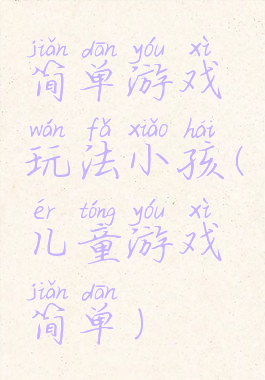 jiǎn dān yóu xì
简单游戏
wán fǎ xiǎo hái
玩法小孩(
ér tóng yóu xì
儿童游戏
jiǎn dān
简单)